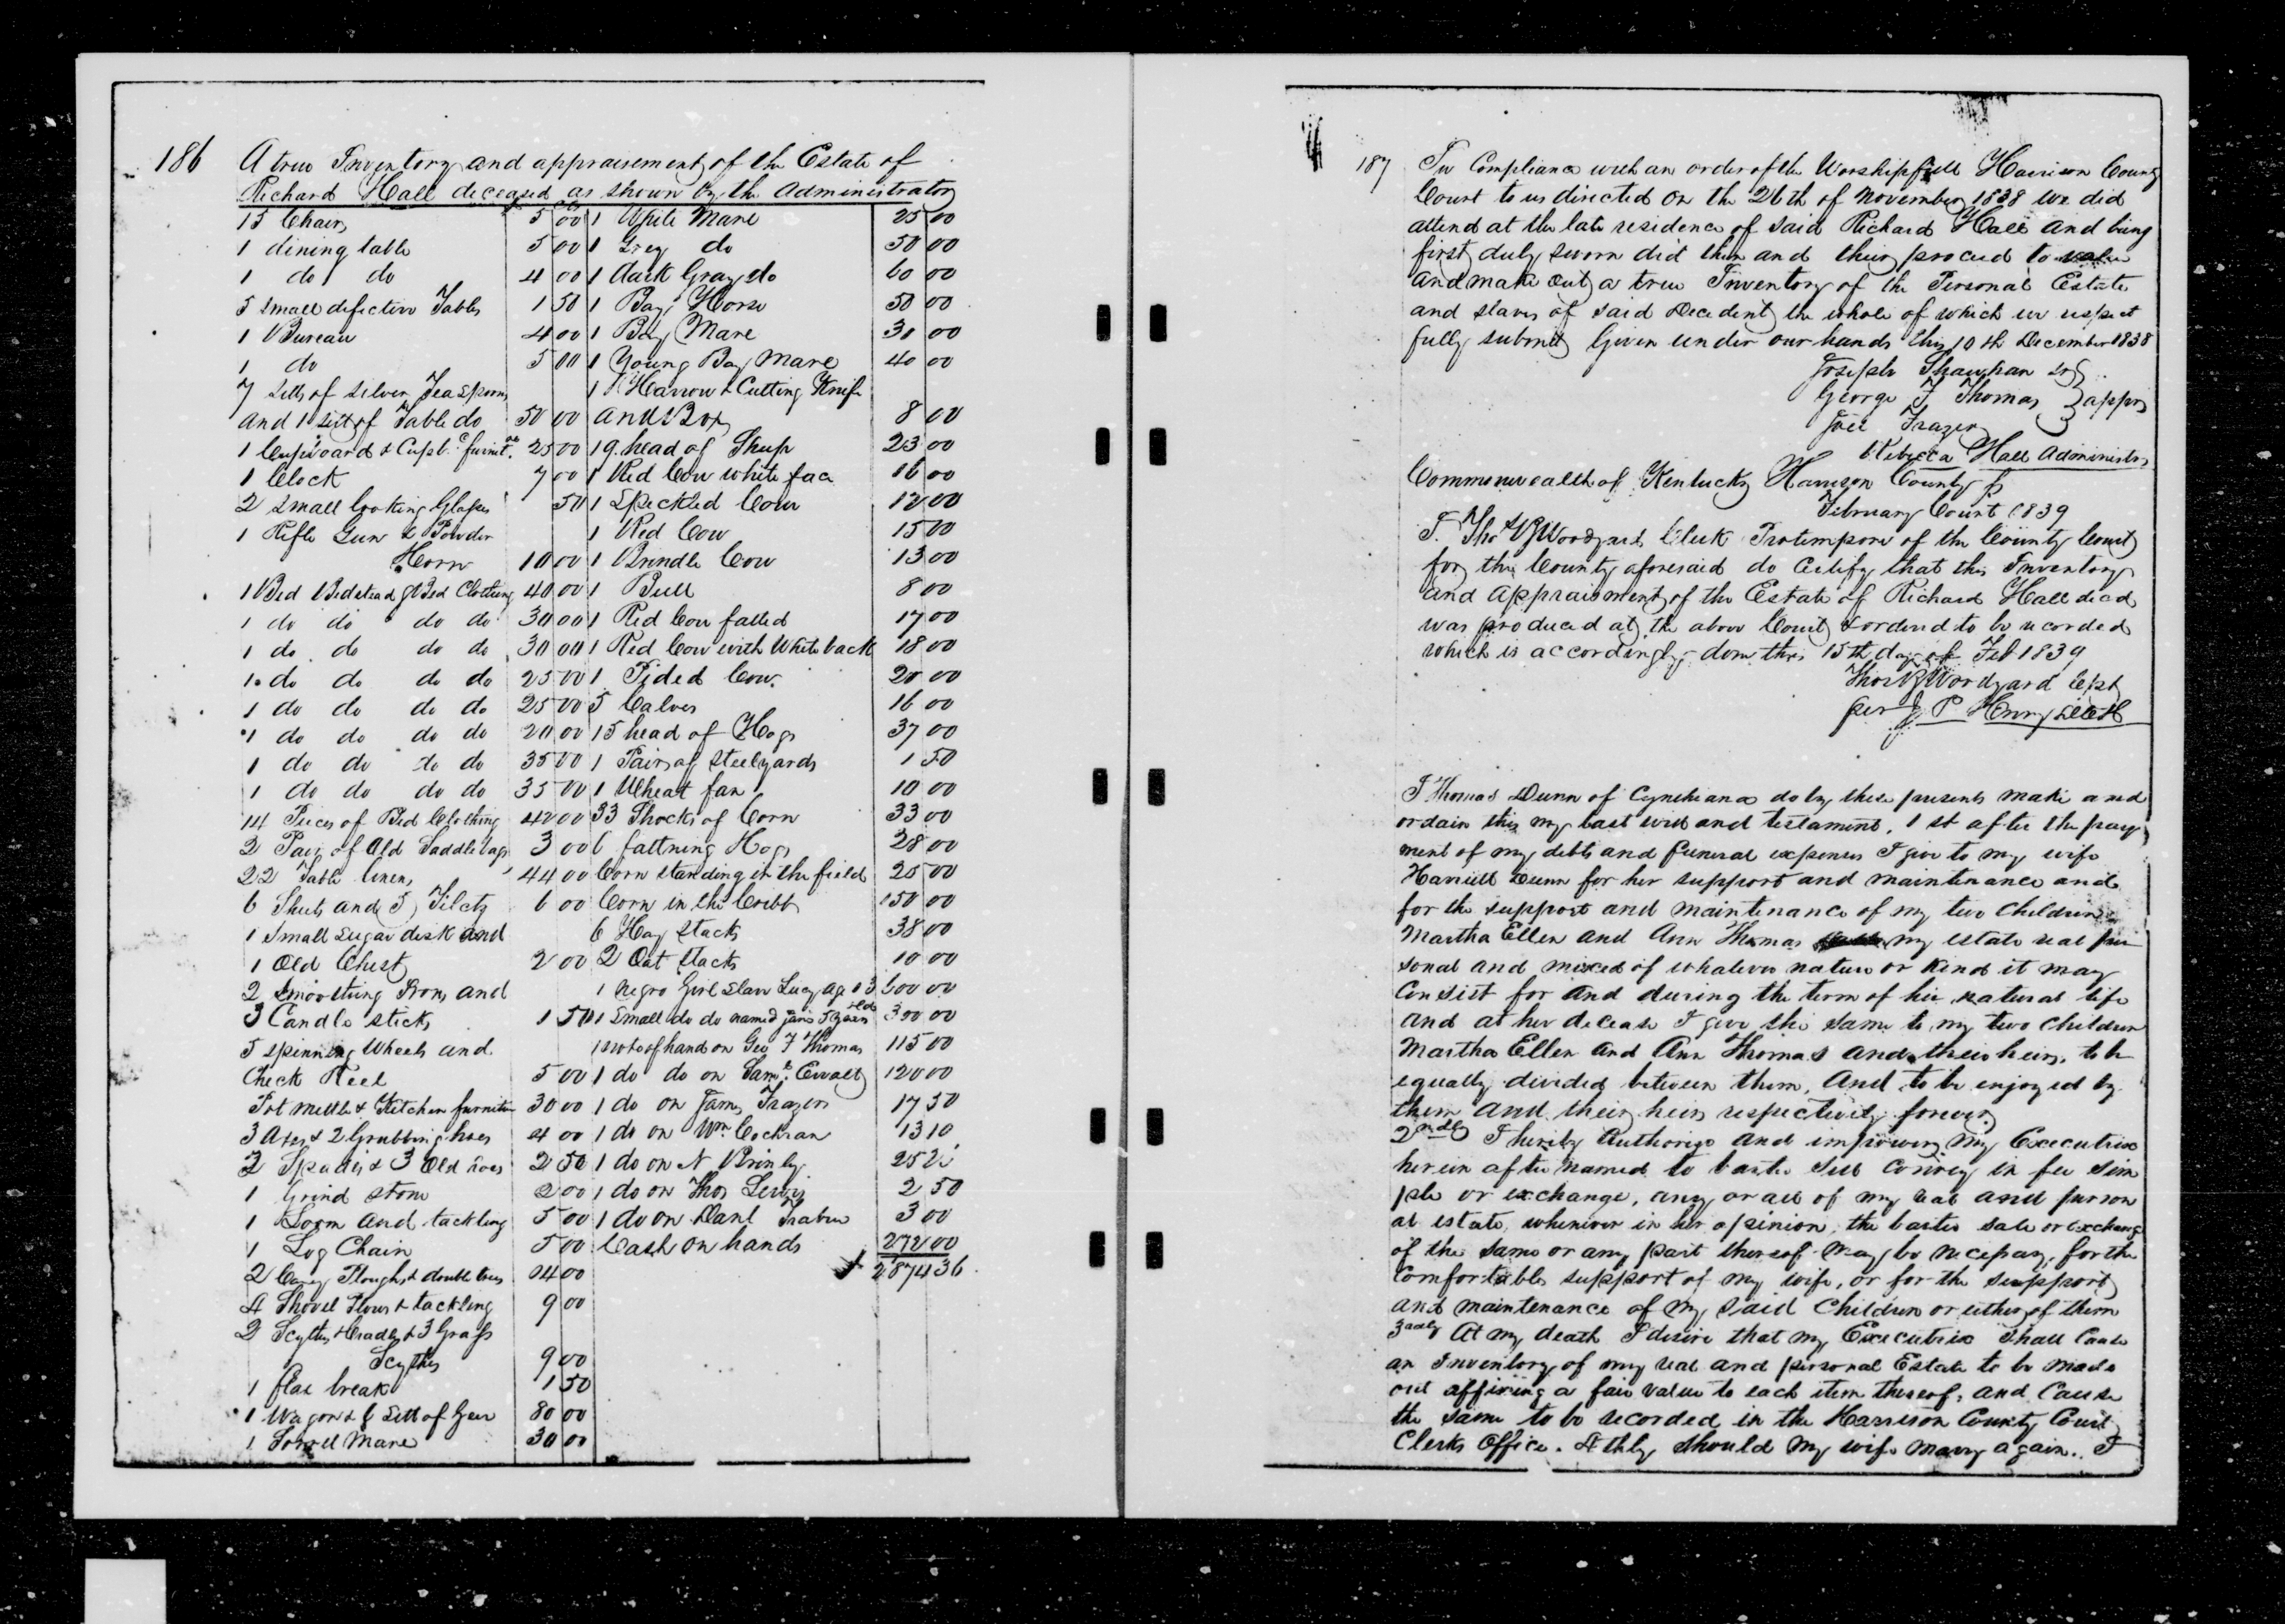 186
A true Inventory and appraisement of the Estate of
Richard Hall deceased as shown by the Administrator
15 Chairs 5 00
1 dining table 5 00
1 do do 4 00
5 small defective Tables 1 50
1 Bureau 4 00
1 do 5 00
7 setts of silver Tea spoons
and 1 sett of Table do 50 00
1 Cupboard & Cupb. furnit. 25 00
1 Clock 7 00
2 small looking Glasses 50
1 Rifle Gun & Powder
Horn 10 00
1 Bed Bedstead & Bed Clothing 40 00
1 do do do do 30 00
1 do do do do 30 00
1 do do do do 25 00
1 do do do do 25 00
1 do do do do 20 00
1 do do do do 35 00
1 do do do do 35 00
14 Pieces of Bed Clothing 42 00
2 Pair of Old Saddlebags 3 00
22 Table linens 44 00
6 Sheets and 5 6 00
1 Small Sugar desk and
1 Old Chest 2 00
2 Smoothing Irons and
3 Candle sticks 1 50
5 spinning Wheels and
Check Reel 5 00
Pot mettle & Kitchen furniture 30 00
3 Axes & 2 Grubbing hoes 4 00
2 Spades & 3 Old hoes 2 50
1 Grind stone 2 00
1 Loom and tackling 5 00
1 Log Chain 5 00
2 Cary Ploughs & double trees 14 00
4 Shovel Plows & tackling 9 00
2 Scythes & Cradles & 3 Grass
Scythes 9 00
1 flax break 1 50
1 Wagon & 6 Sett of Gear 80 00
1 Sorrell Mare 30 00
1 White Mare 25 00
1 Grey do 50 00
1 dark Gray do 60 00
1 Bay Horse 50 00
1 Bay Mare 30 00
1 Young Bay Mare 40 00
1 Harrow & Cutting Knife
and Box 8 00
19 head of Sheep 23 00
1 Red Cow white face 16 00
1 Speckled Cow 12 00
1 Red Cow 15 00
1 Brindle Cow 13 00
1 Bull 8 00
1 Red Cow fatted 17 00
1 Red Cow with White back 18 00
1 Pided Cow. 20 00
5 Calves 16 00
15 head of Hogs 37 00
1 Pair of steelyards 1 50
1 Wheat fan 10 00
33 Shocks of Corn 33 00
6 fattning Hogs 28 00
Corn standing in the field 25 00
Corn in the Cribb 150 00
6 Hay Stacks 38 00
2 Oat Stacks 10 00
1 Negro Girl Slave Lucy age 13 600 00
1 Small do do named Jane 5 years old 350 00
1 note of hand on Geo F Thomas 115 00
1 do do on Saml. Ewalt 120 00
1 do on James Frazer 17 50
1 do on Wm. Cochran 13 10
1 do on N Brinly 25
1 do on Thos Lewis 2 50
1 do on Danl 3 00
Cash on hands 272 00
2874 36
187
In Compliance with an order of the Worshipfull Harrison County
Court to us directed on the 26th of November 1838 we did
attend at the late residence of said Richard Hall and being
first duly sworn did then and their proceed to value
and make out a true Inventory of the Personal Estate
and slaves of said decedent the whole of which we respect
fully submit Given under our hands this 10th December 1838
Joseph Shawhan
George F Thomas } apprs
Joel Frazer
Rebecca Hall Administrx
Commonwealth of Kentucky Harrison County
February Court 1839
I. Thos B Woodyard Clerk Protempore of the County Court
for the County aforesaid do certify that this Inventory
and Appraisment of the Estate of Richard Hall decd
was produced at the above Court & ordered to be recorded
which is accordingly done this 15th day of Feb 1839
Thos B Woodyard
per J. P Henry
I Thomas Dunn of Cynthiana do by these presents make and
ordain this my last will and testament. 1st after the pay
ment of my debts and funeral expenses I give to my wife
Harriett Dunn for her support and maintenance and
for the support and maintenance of my two Children
Martha Ellen and Ann Thomas my estate real per
sonal and mixed of whatever nature or kind it may
Consist for and during the term of her natural life
and at her decease I give the same to my two children
Martha Ellen and Ann Thomas and their heirs. to be
equally divided between them, And to be enjoyed by
them and their heirs respectively forever
2ndly I hereby Authorize and impower my Executrix
herein after named to barter sell convey in fee sim
ple or exchange, any or all of my real and person
al estate, whenever in her opinion the barter sale or exchange
of the same or any part thereof may be necessary, for the
Comfortable support of my wife, or for the support
and maintenance of my said Children or either of them
3adly At my death I desire that my Executrix Shall Cause
an Inventory of my real and personal Estate to be made
out affixing a fair value to each item thereof, and Cause
the same to be recorded in the Harrison County Court
Clerks Office. 4thly Should my wife marry again. I